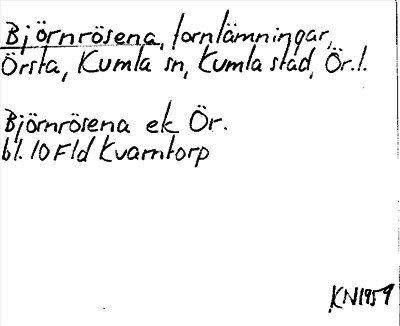 Björnrösena, fornlämningar,
Örsta, Kumla sn, Kumla stad, Ör. l.
Björnrösena ek Ör.
bl. 10 F1d Kvarntorp
KN1959